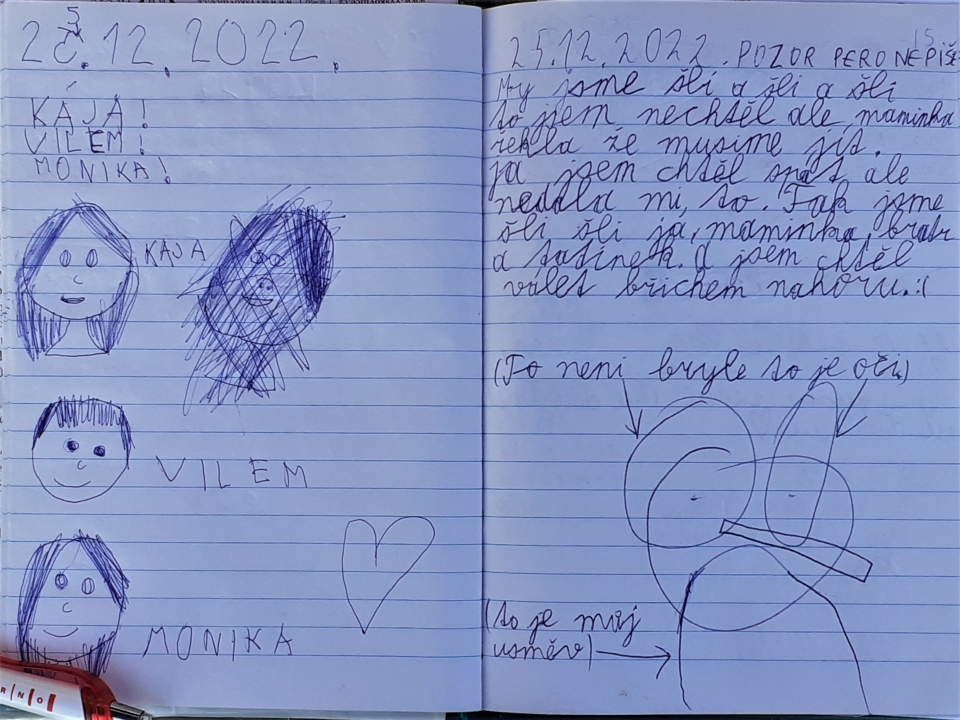 25.12.2022.
KÁJA!
VILEM!
MONIKA!
KÁJA
VILEM
MONIKA
RNO
15
25.12.2022. POZOR PERO NEPIŠE
My jsme šli a šli a šli
to jsem nechtěl ale maminka
řekla že musíme jít.
ja jsem chtěl spát ale
nedala mi, to. Tak jsme
šli šli ja, maminka, bratr
a tatínek. A jsem chtěl
válet břichem nahoru.:(
(To není bryle to je oči)
(to je můj
usměv)